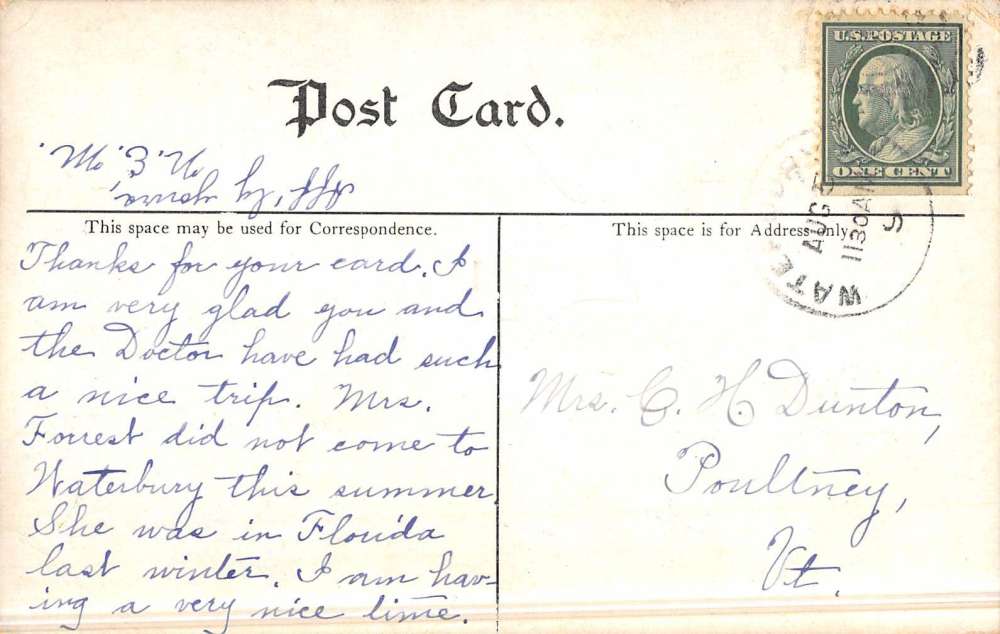 U.S. POSTAGE
ONE CENT
WATE
AUG
1130AM
Post Card.
This space may be used for Correspondence.
This space is for Address only.
Thanks for your card. I
am very glad you and
the Doctor have had such
a nice trip. Mrs.
Forrest did not come to
Waterbury this summer.
She was in Florida
last winter. I am hav-
ing a very nice time.
Mrs. C. H. Dunton,
Poultney,
Vt.